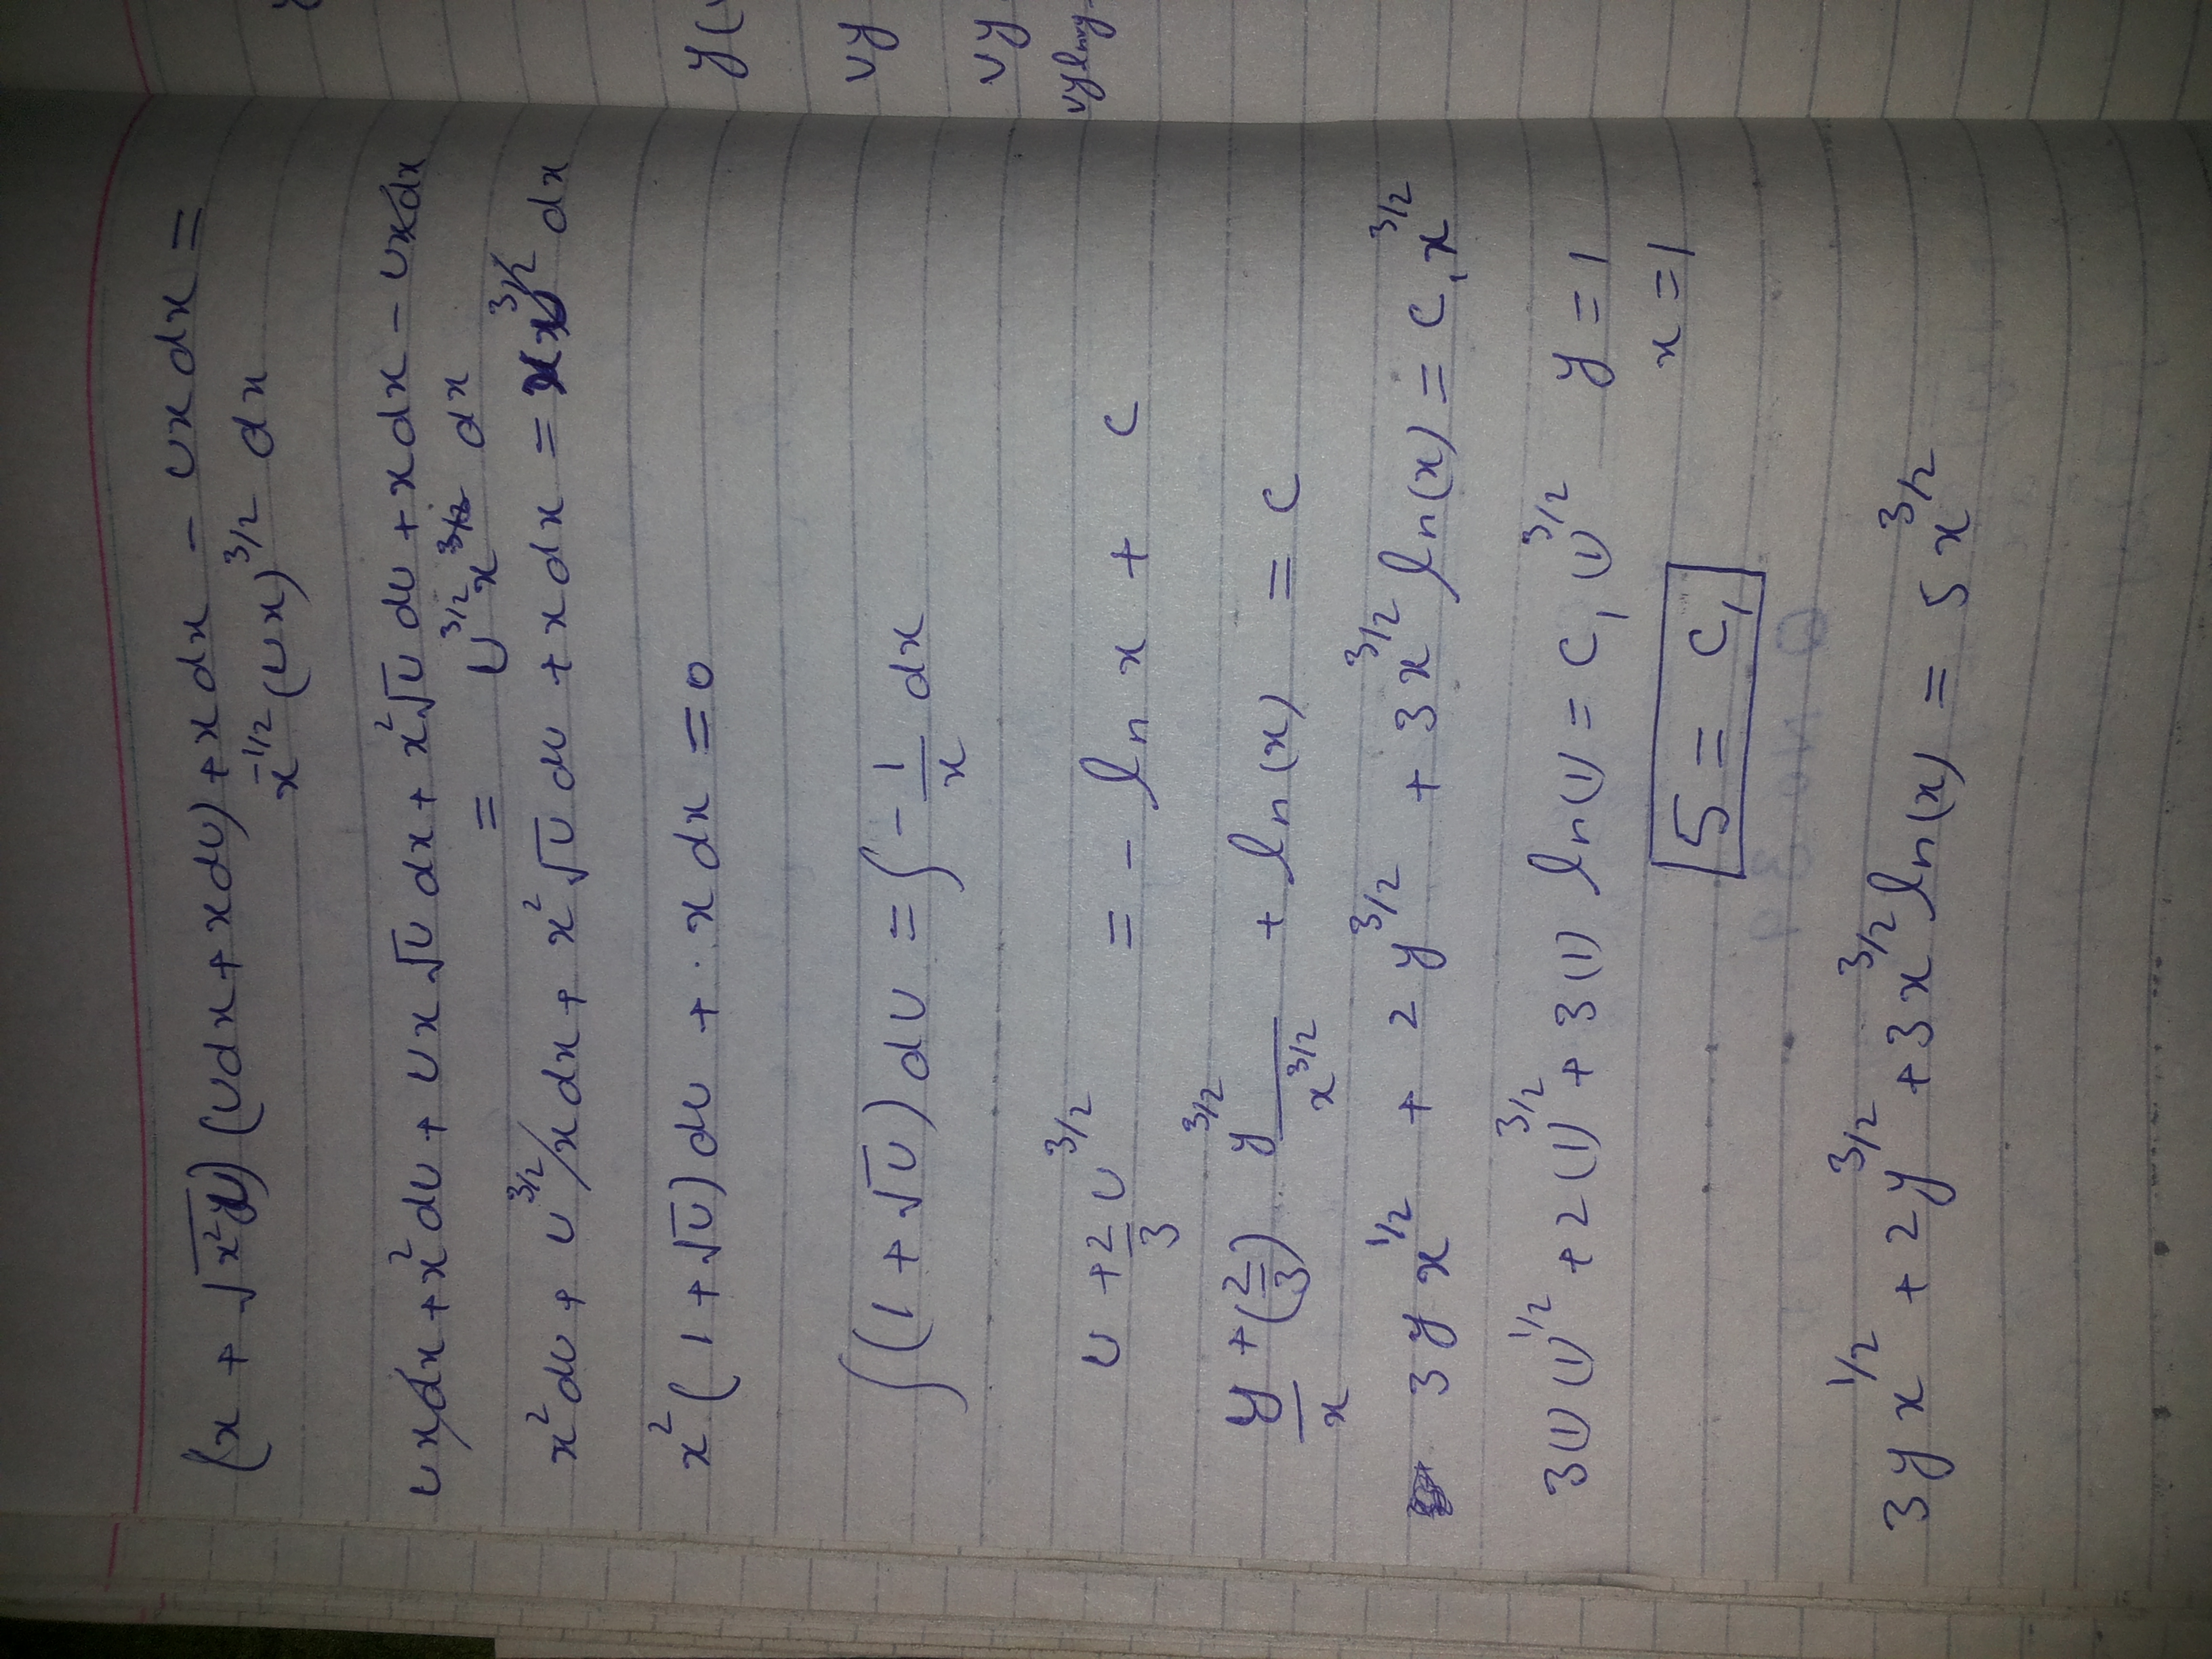 (x + √x²u) (udx + xdu) + x dx − ux dx =
x^-1/2 (ux)^3/2 dx
ux dx + x² du + ux √u dx + x²√u du + x dx − ux dx
= u^3/2 x dx
x² du + u^3/2 x dx + x² √u du + x dx = x u^3/2 dx
x² (1 + √u) du + x dx = 0
∫(1 + √u) du = ∫ − 1/x dx
u + 2/3 u^3/2 = − ln x + c
y/x + (2/3) y^3/2 / x^3/2 + ln(x) = c
3 y x^1/2 + 2 y^3/2 + 3 x^3/2 ln(x) = c₁ x^3/2
3(1) (1)^1/2 + 2(1)^3/2 + 3(1) ln(1) = c₁ (1)^3/2 y = 1
x = 1
5 = c₁
3 y x^1/2 + 2y^3/2 + 3x^3/2 ln(x) = 5 x^3/2
y(
vy
vy
vy lnvy